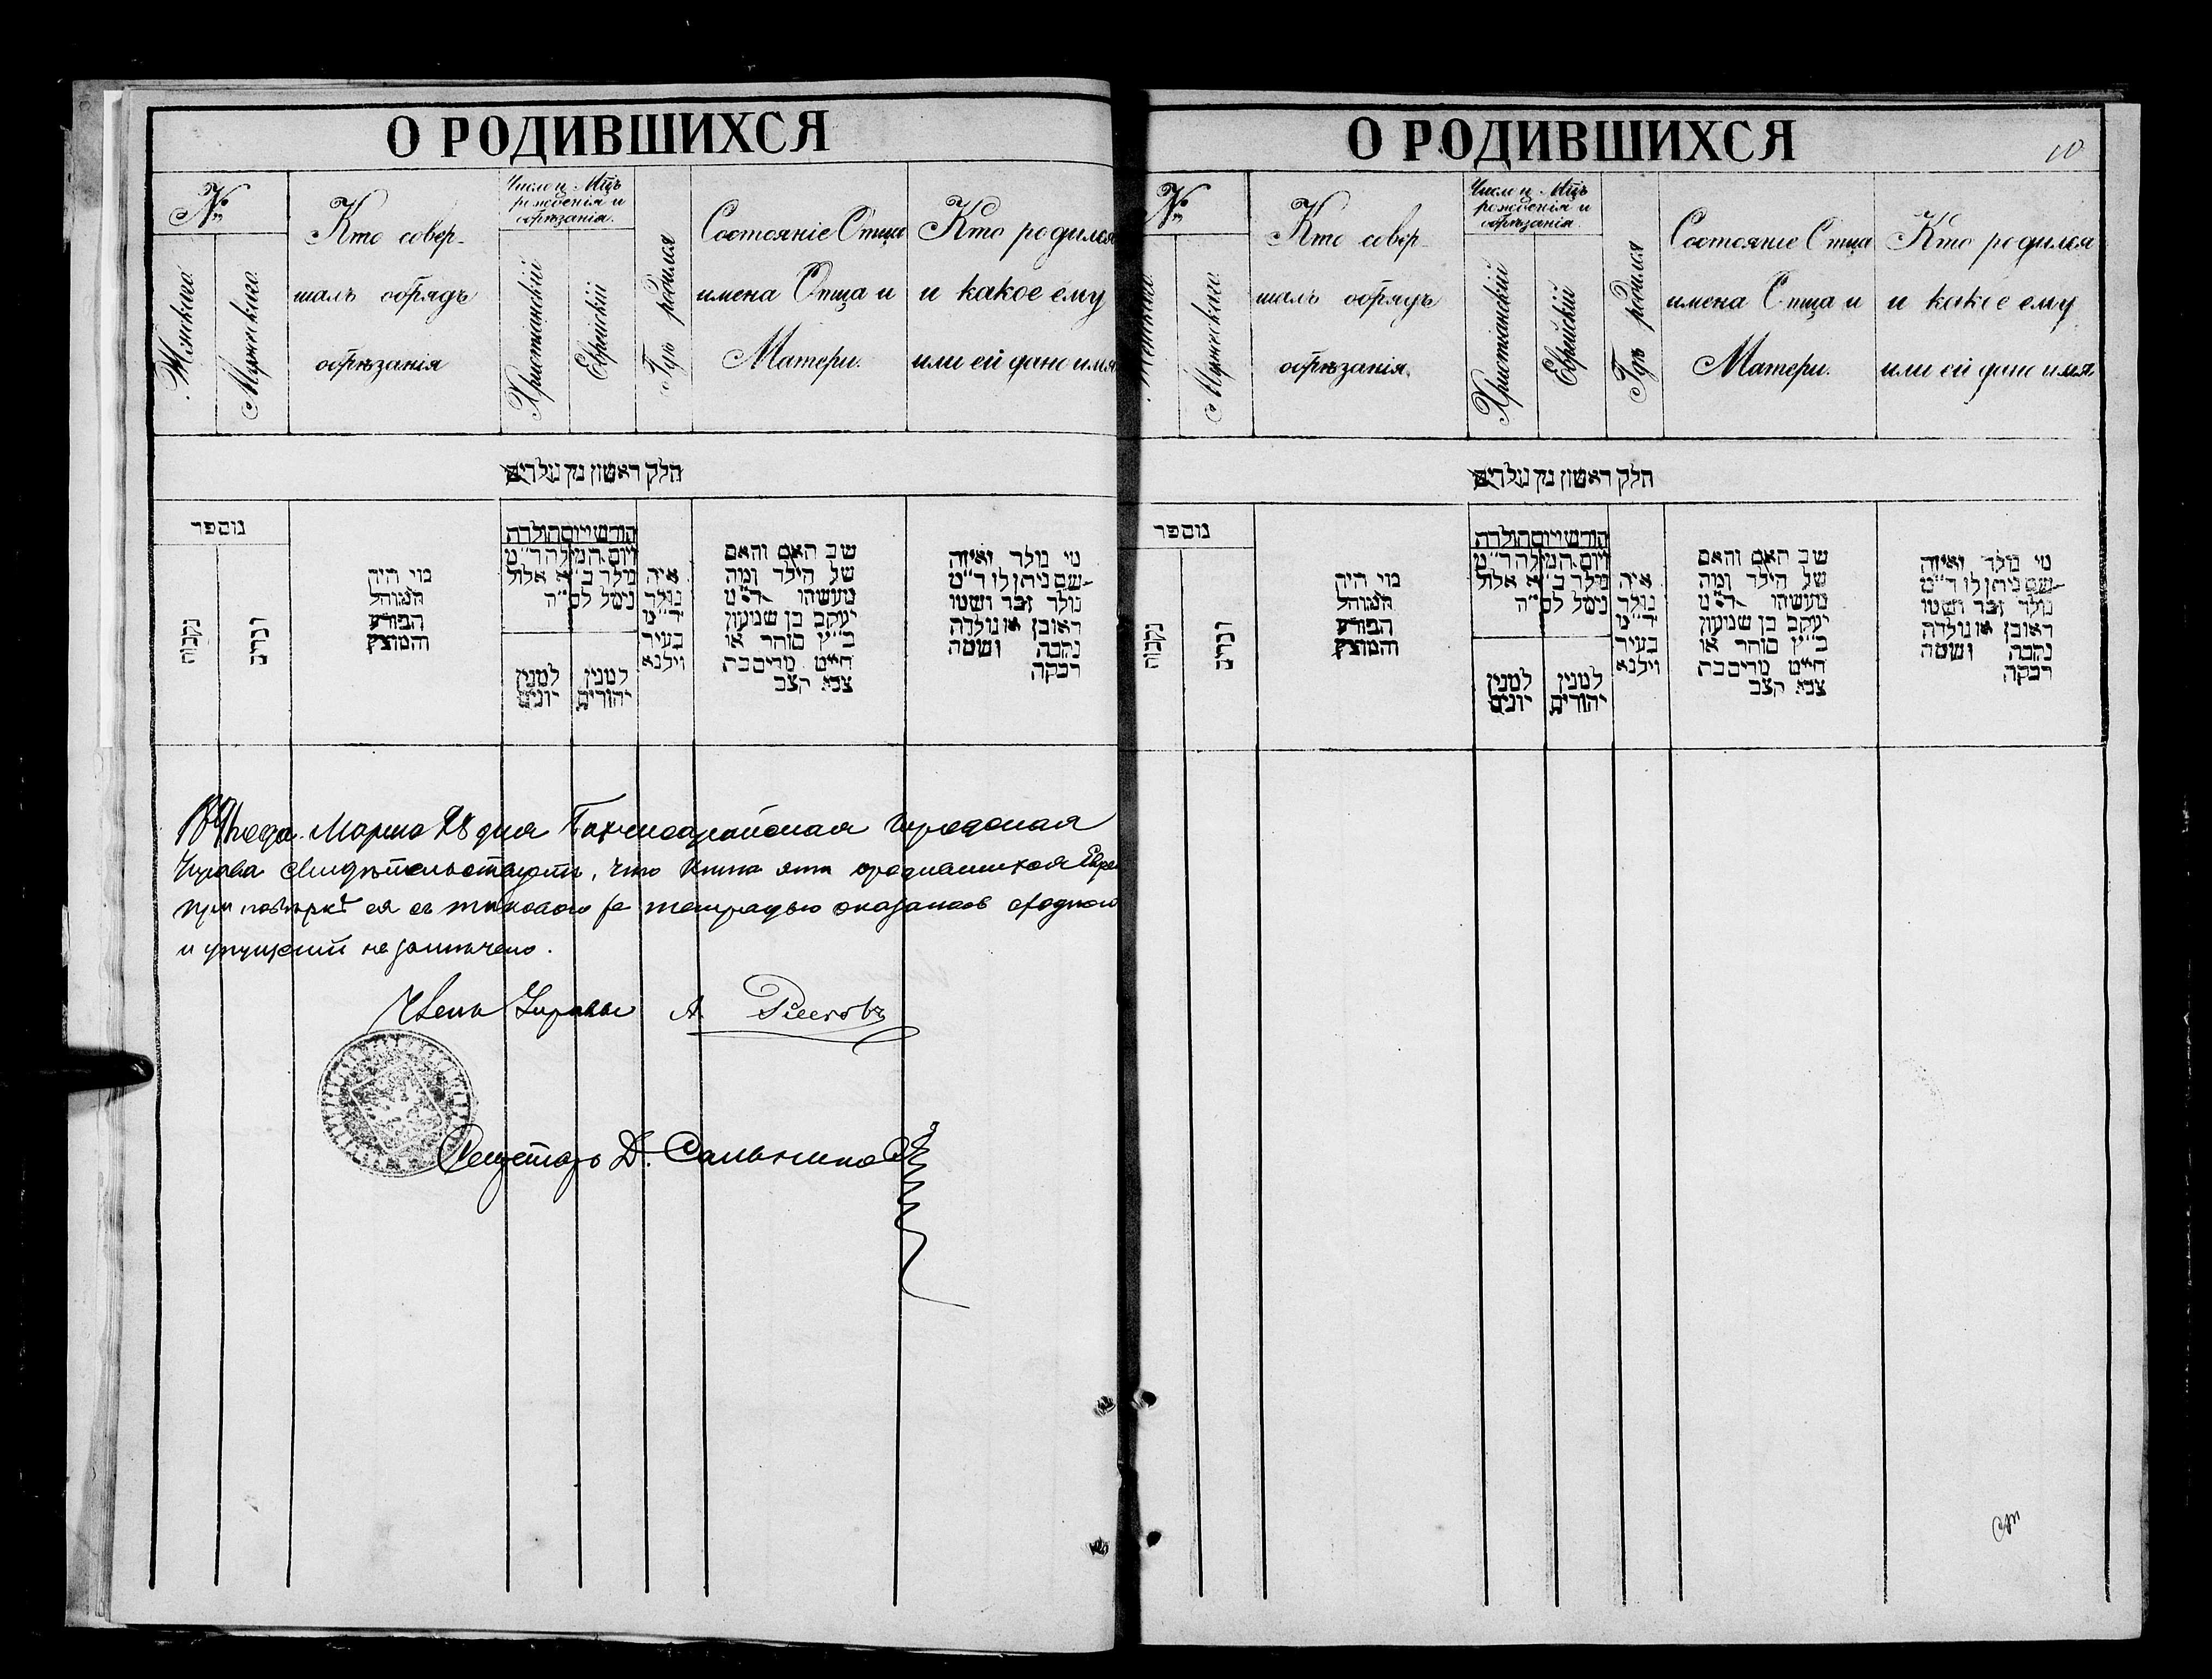 О РОДИВШИХСЯ
№
Женскаго.
Мужескаго.
Кто совер-
шалъ обрядъ
обрѣзанія
Число и Мцъ
рожденія и
обрѣзанія.
Христіанскій
Еврейскій
Гдѣ родился
Состояніе Отца
имена Отца и
Матери.
Кто родился
и какое ему
или ей дано имя
חלק ראשון מן נולדים
נוספר
נקבות
זכרים
מי היה
המוהל
הפורע
והמוצץ
חודש ויום הולדה
ויום המילה ד״מ
נולד ב״א אלול
נימל לס״ה
למנין
יונים
למנין
יהודים
איה
נולד
ד״מ
בעיר
ווילנא
שב האם והאם
של הילד ומה
מעשיהו ד״מ
יעקב בן שמעון
כ״ץ סוחר או
חייט מרים בת
צבי קצב
מי נולד ואיזה
שם ניתן לו ד״מ
נולד זכר ושמו
ראובן או נולדה
נקבה ושמה
רבקה
года Марта 28 дня Бахчисарайская Городская
Управа Свидѣтельствуетъ, что книга эта ородившихся Евре
при повѣркѣ ея съ таковою же тетрадью оказалась сходною
и упущений не замечено.
Членъ Управы А.
Секретарь Д. Сальников
О РОДИВШИХСЯ
10
№
Женскаго
Мужескаго.
Кто совер-
шалъ обрядъ
обрѣзанія.
Число и Мцъ
рожденія и
обрѣзанія.
Христіанскій
Еврейскій
Гдѣ родился
Состояніе Отца
имена Отца и
Матери.
Кто родился
и какое ему
или ей дано имя.
חלק ראשון מן נולדים
נוספר
נקבות
זכרים
מי היה
המוהל
הפורע
והמוצץ
חודש ויום הולדה
ויום המילה ד״מ
נולד ב״א אלול
נימל לס״ה
למנין
יונים
למנין
יהודים
איה
נולד
ד״מ
בעיר
ווילנא
שב האם והאם
של הילד ומה
מעשיהו ד״מ
יעקב בן שמעון
כ״ץ סוחר או
חייט מרים בת
צבי קצב
מי נולד ואיזה
שם ניתן לו ד״מ
נולד זכר ושמו
ראובן או נולדה
נקבה ושמה
רבקה